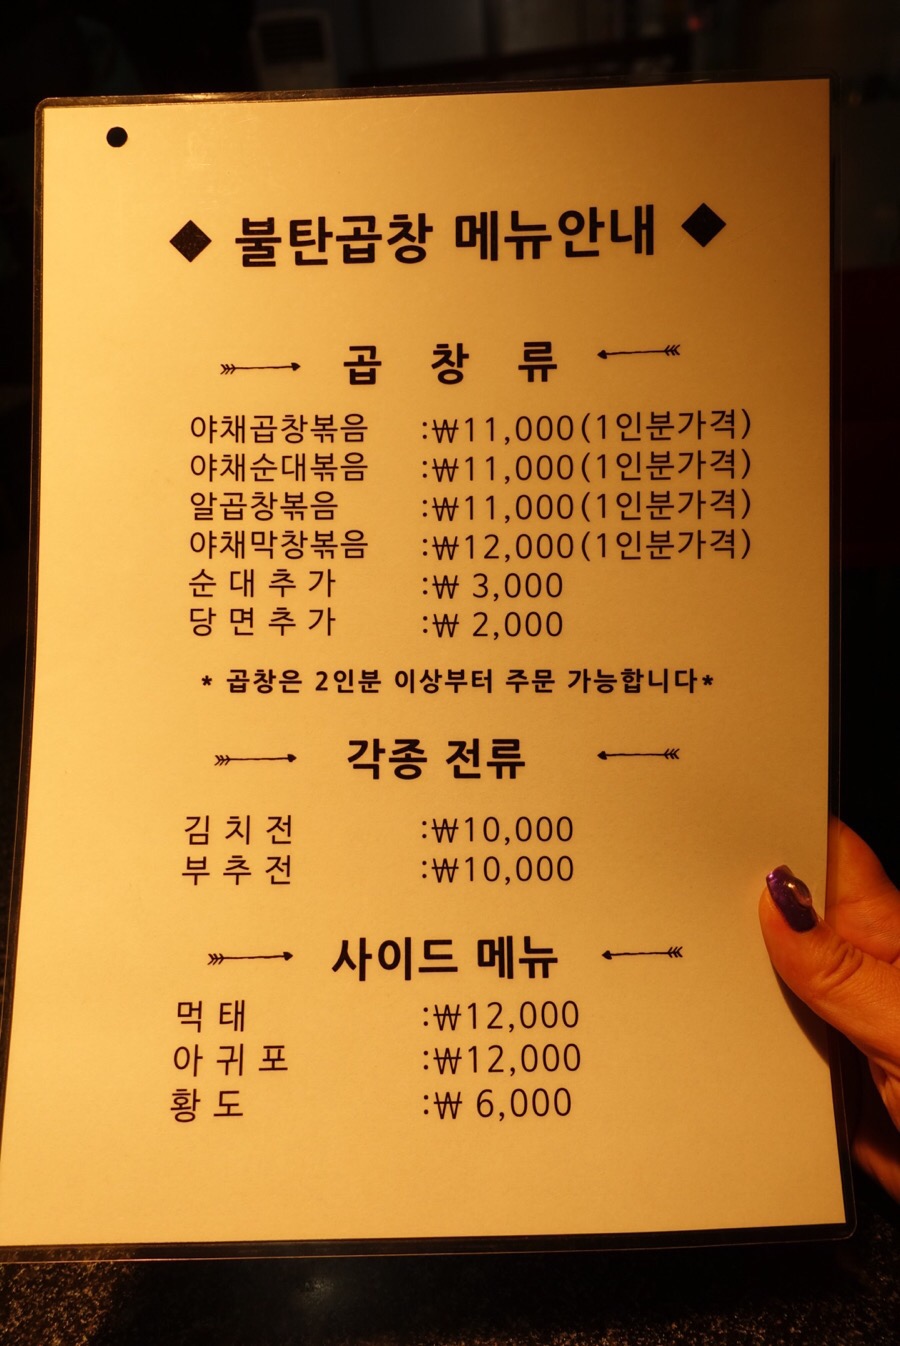 ◆ 불탄곱창 메뉴안내 ◆
곱 창 류
야채곱창볶음 :₩11,000(1인분가격)
야채순대볶음 :₩11,000(1인분가격)
알곱창볶음 :₩11,000(1인분가격)
야채막창볶음 :₩12,000(1인분가격)
순 대 추 가 :₩ 3,000
당 면 추 가 :₩ 2,000
* 곱창은 2인분 이상부터 주문 가능합니다*
각종 전류
김 치 전 :₩10,000
부 추 전 :₩10,000
사이드 메뉴
먹 태 :₩12,000
아 귀 포 :₩12,000
황 도 :₩ 6,000